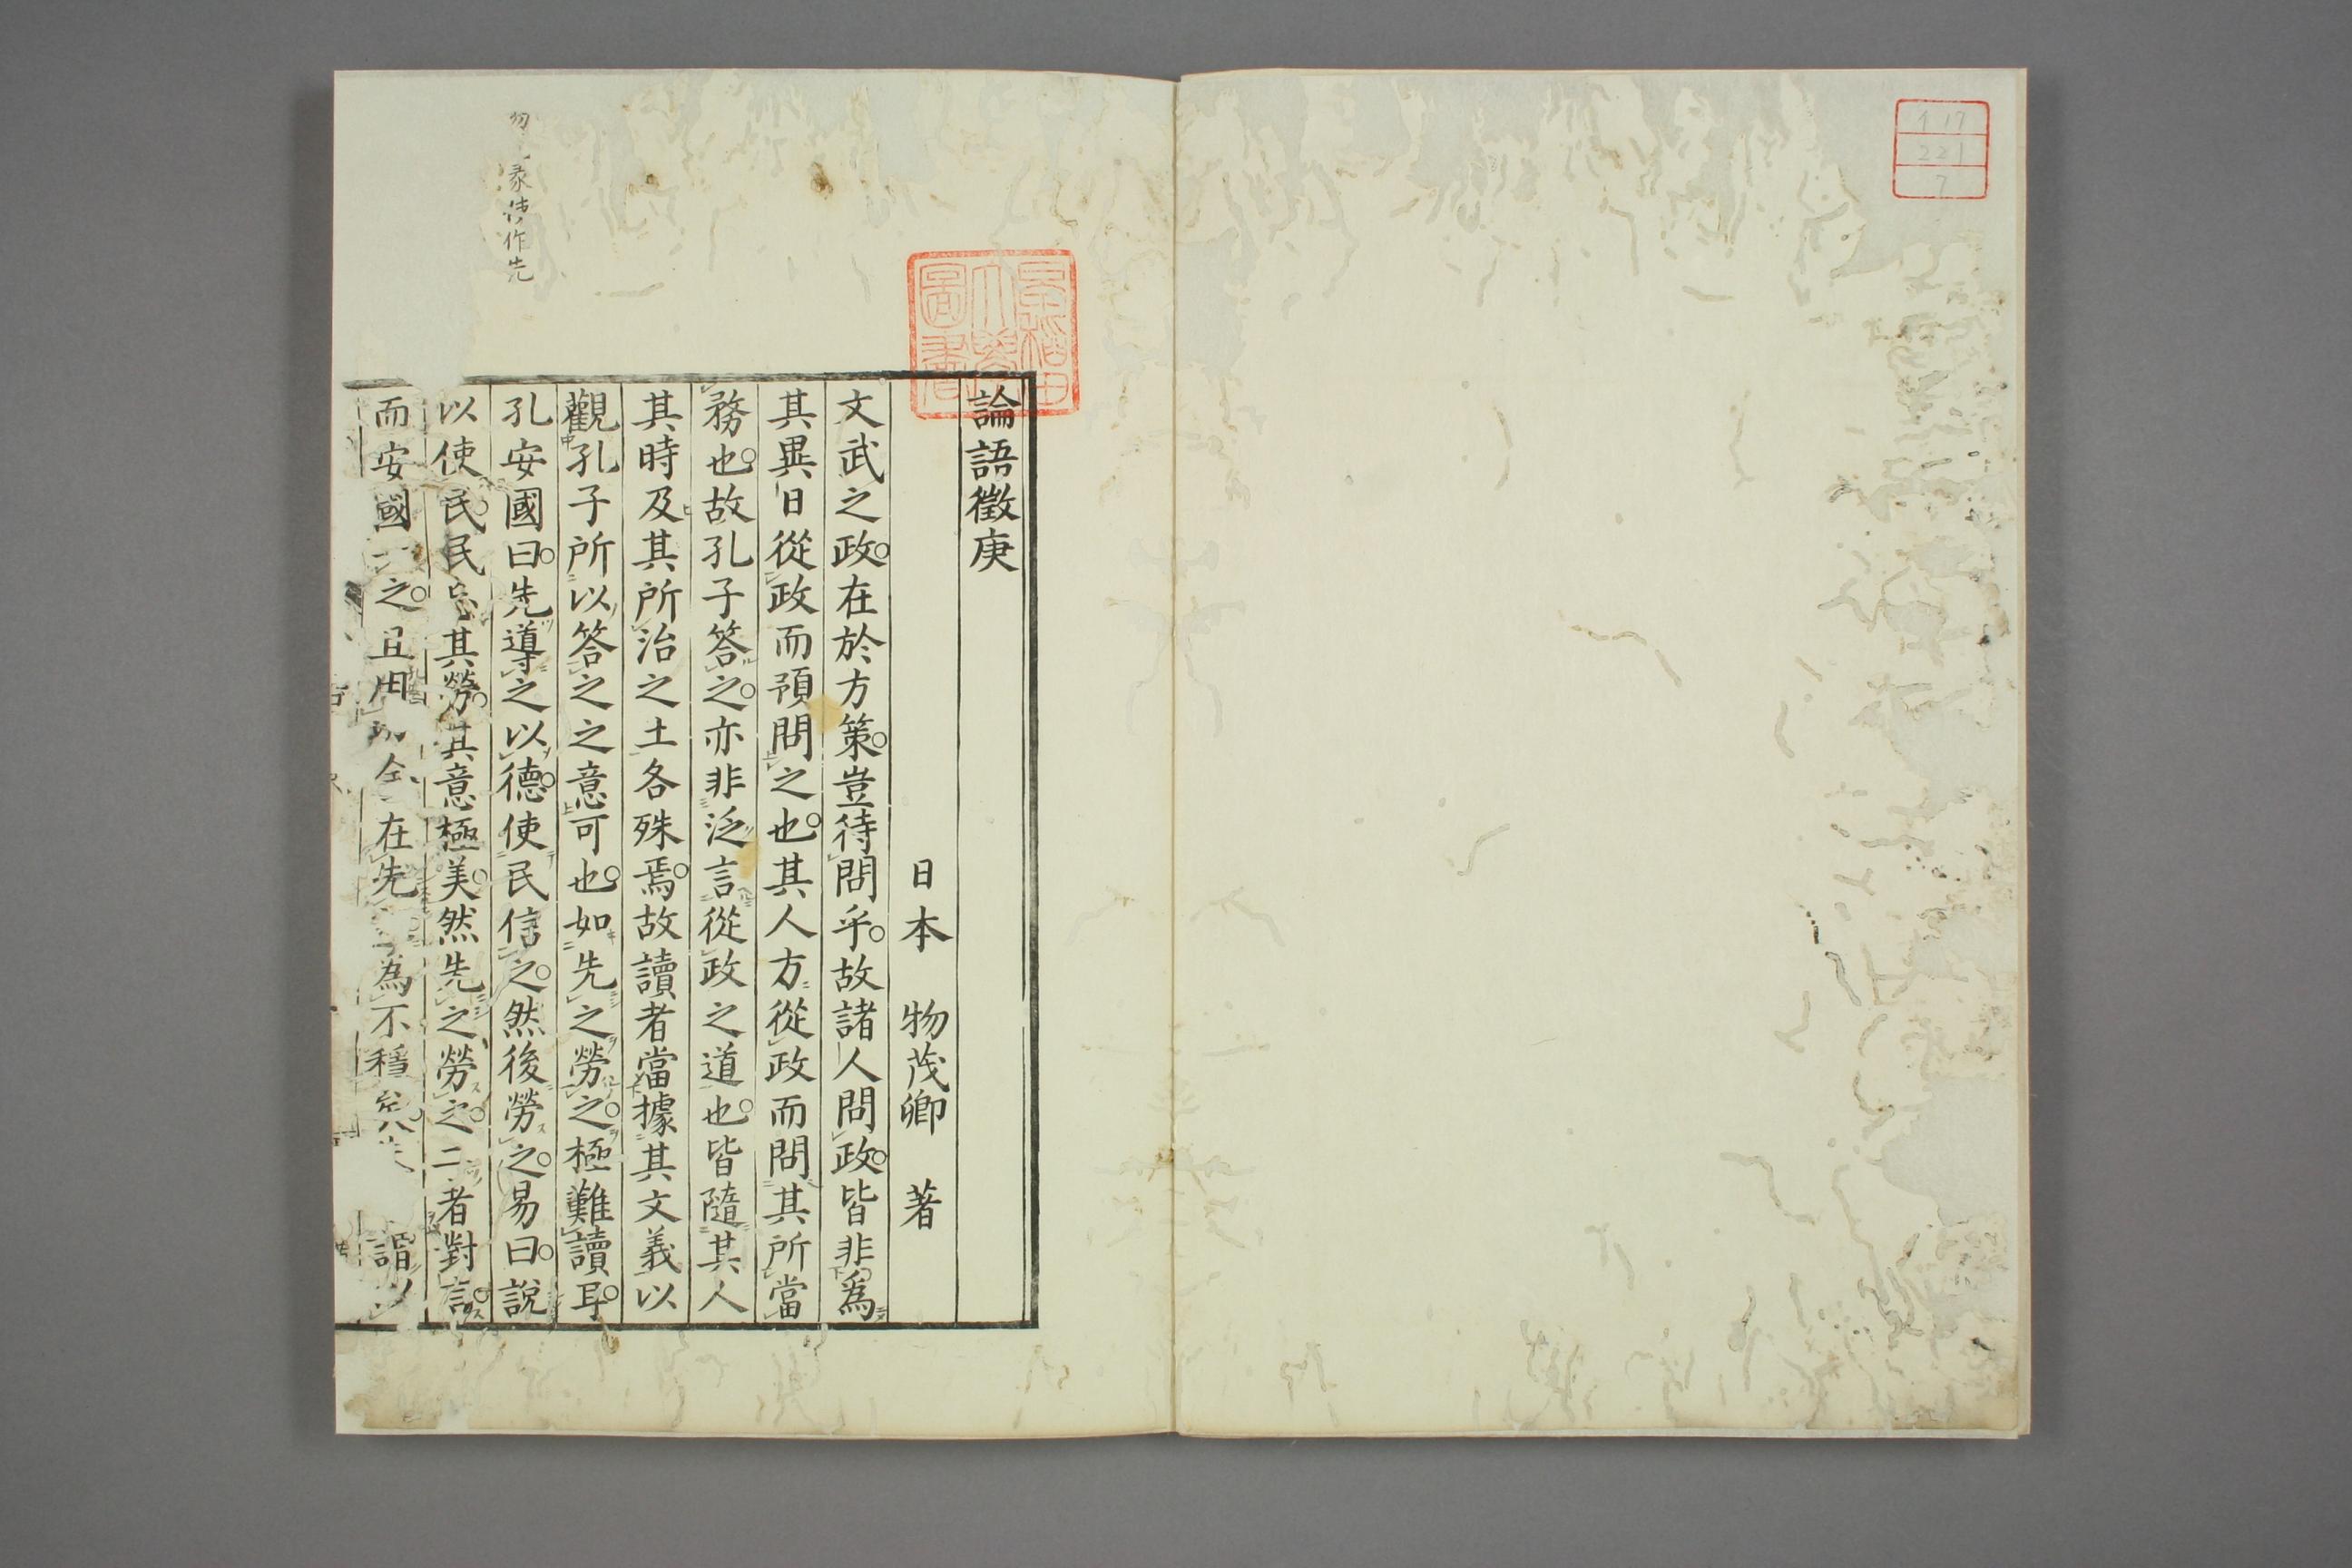 論語徵庚
日本 物茂卿 著
文武之政。在於方策。豈待問乎。故諸人問政。皆非為
其異日從政而預問之也。其人方從政而問其所當
務也。故孔子答之。亦非泛言從政之道也。皆隨其人
其時及其所治之土各殊焉。故讀者當據其文義以
觀孔子所以答之之意可也。如先之勞之。極難讀耳。
孔安國曰。先導之以德。使民信之。然後勞之。易曰。說
以使民。民忘其勞。其意極美。然先之勞之。二者對言。
而安國之。且在先為不穩矣謂以
作先
早稲田大學圖書
221
7